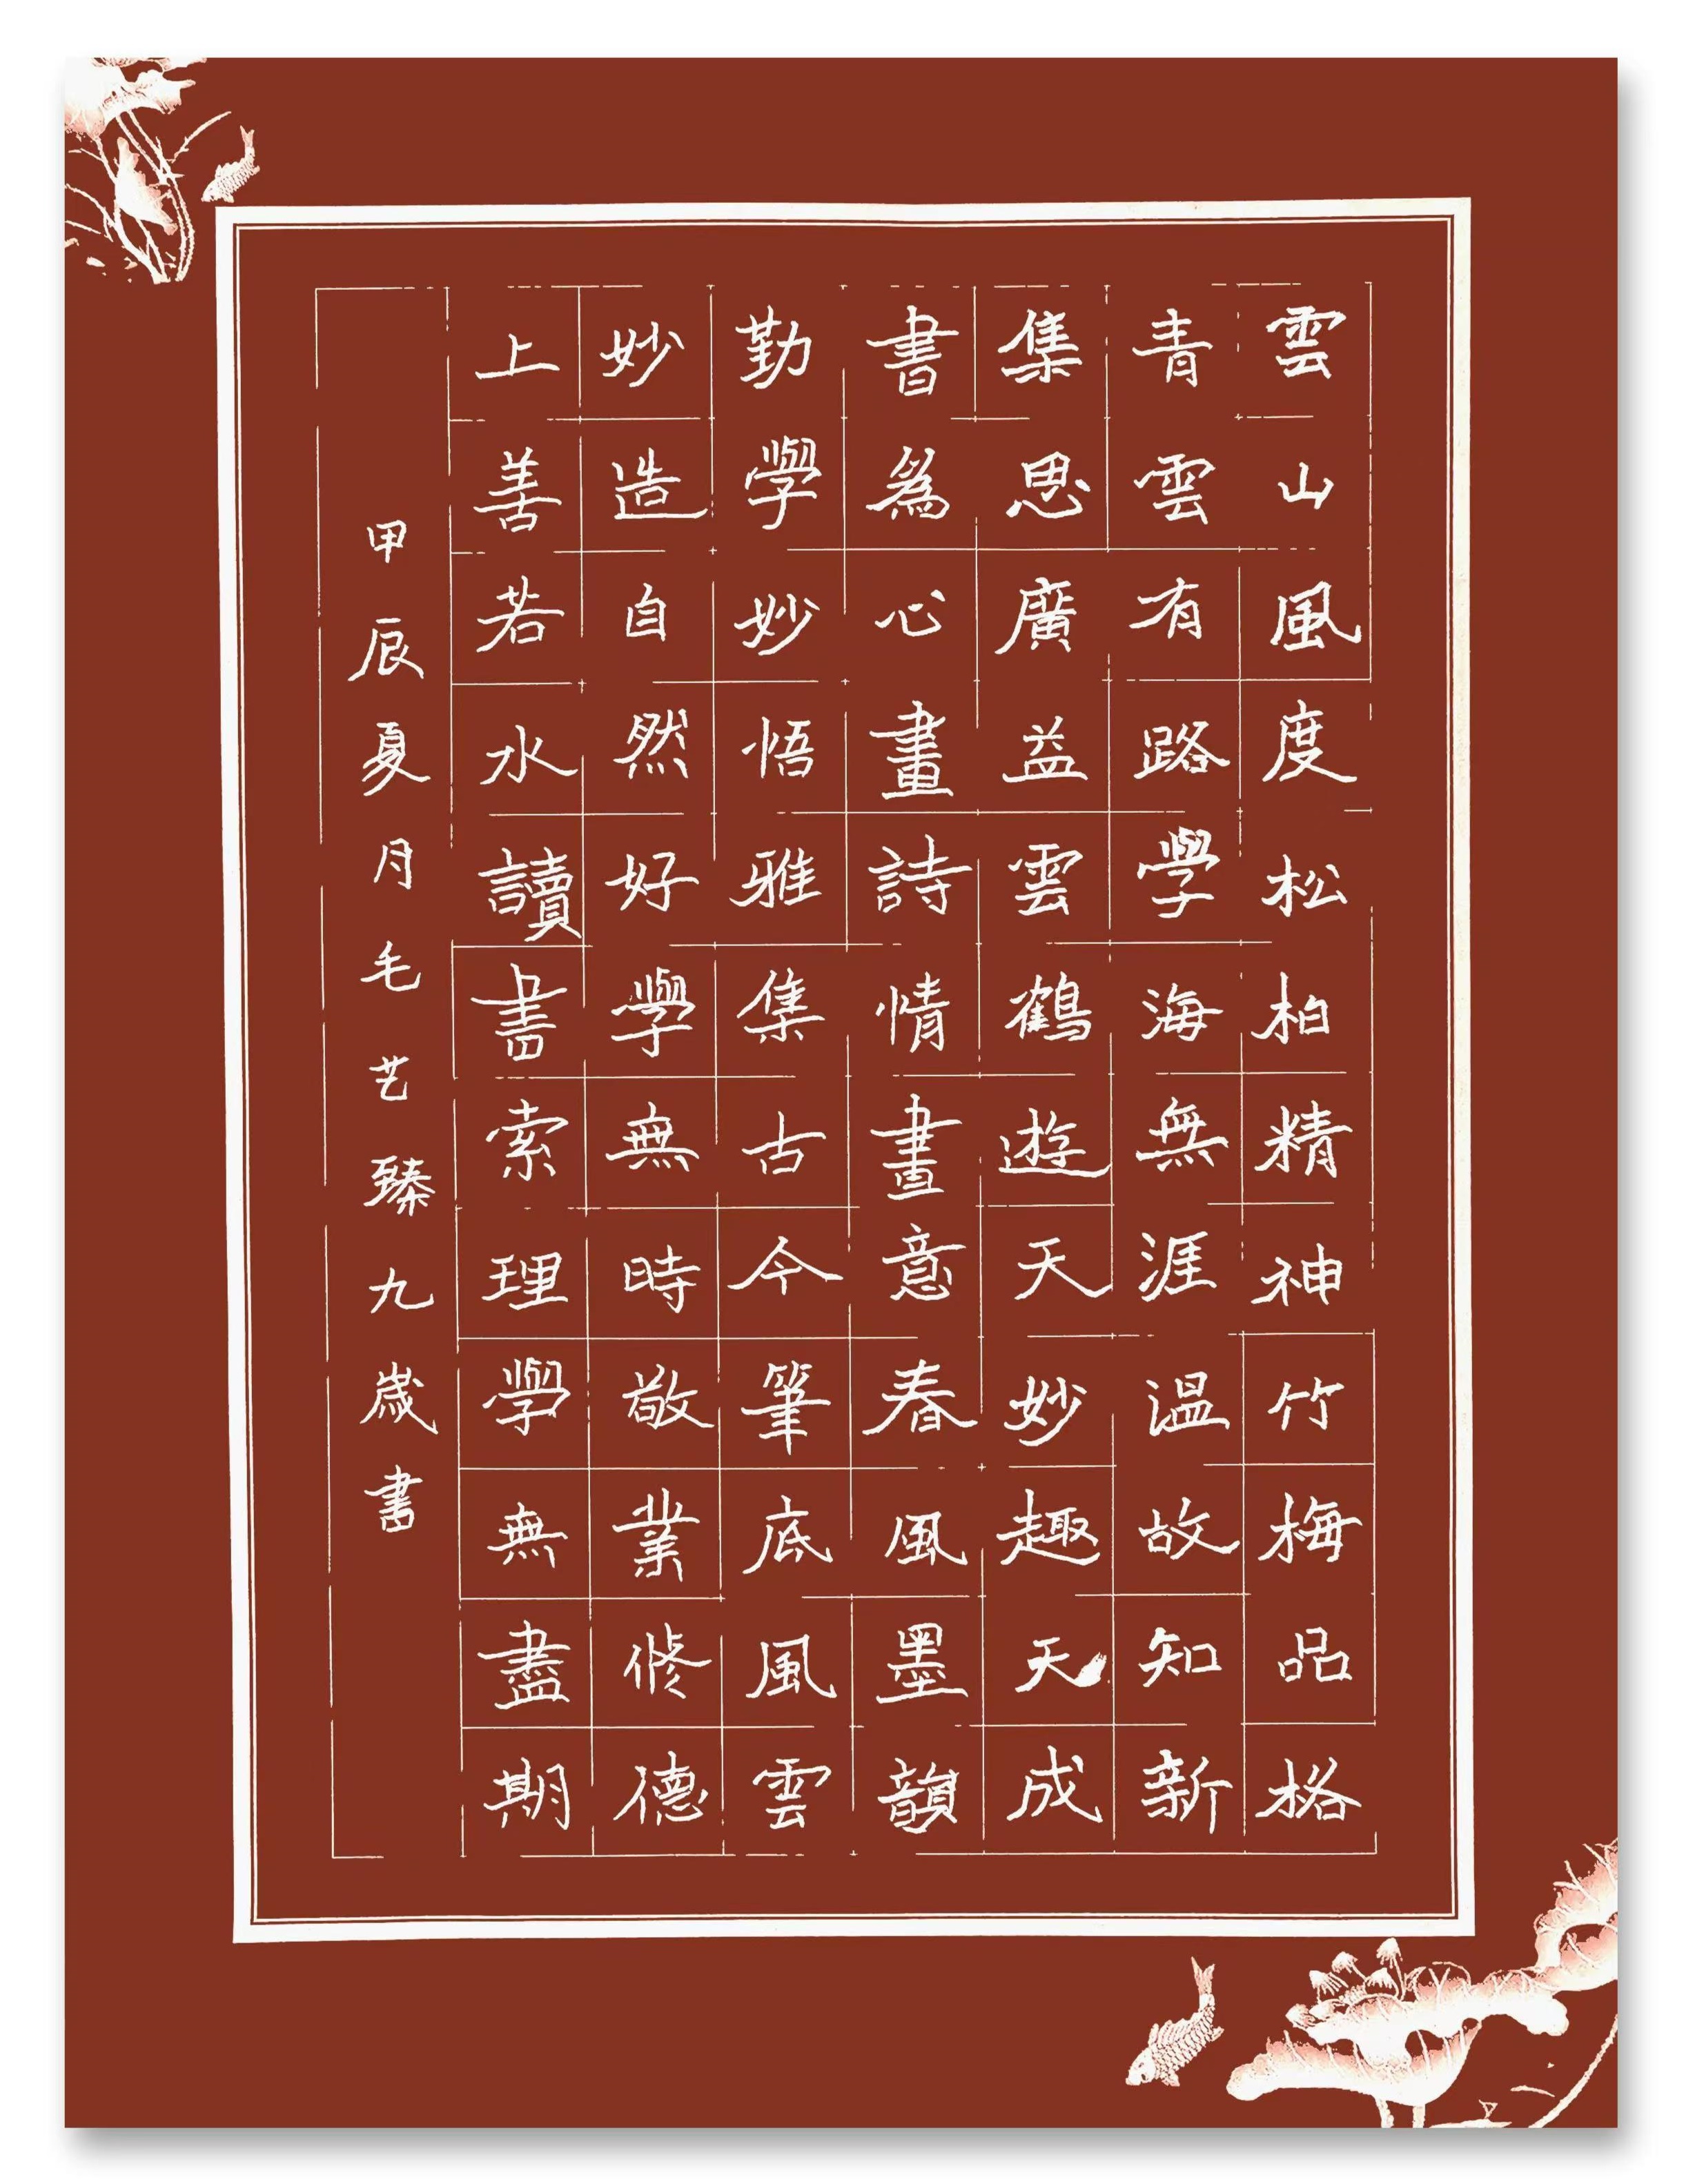 雲山風度松柏精神竹梅品格
青雲有路學海無涯温故知新
集思廣益雲鶴遊天妙趣天成
書為心畫詩情畫意春風墨韻
勤學妙悟雅集古今筆底風雲
妙造自然好學無時敬業修德
上善若水讀書索理學無盡期
甲辰夏月毛艺臻九歲書